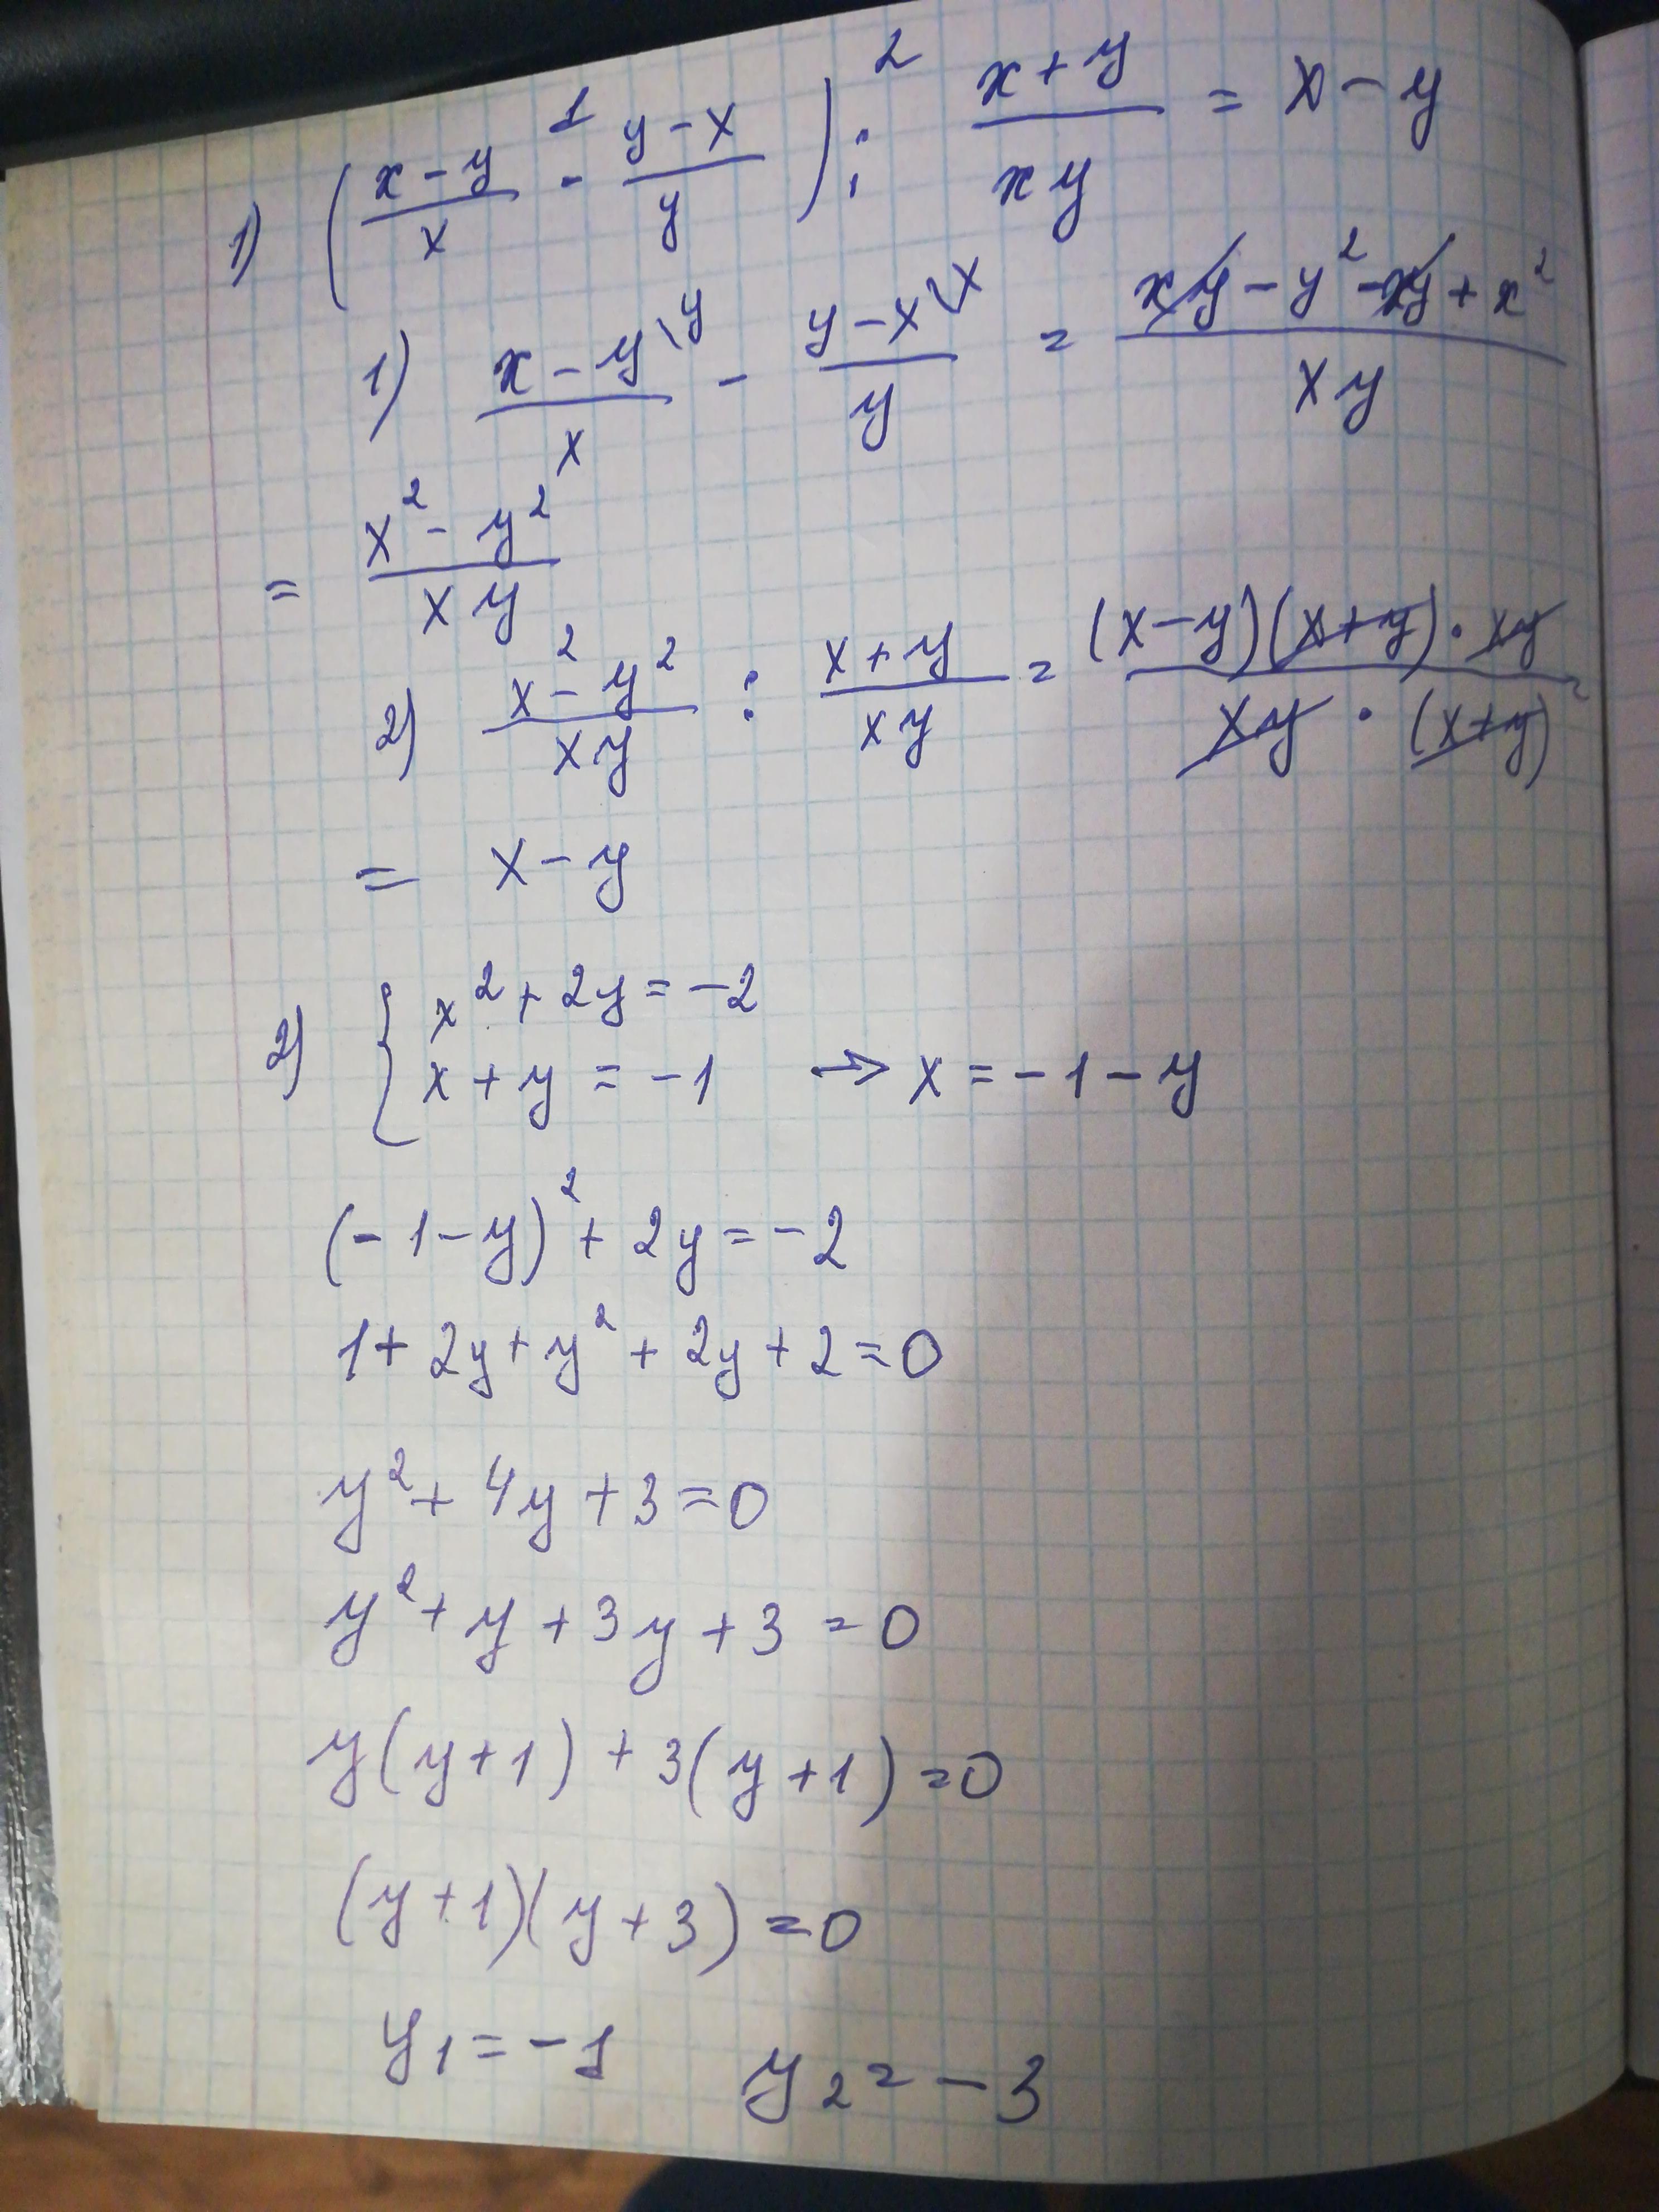 1) ( (x-y)/x -¹ (y-x)/y ) :² (x+y)/(xy) = x-y
1) (x-y)/x \y - (y-x)/y \x = (xy - y² - xy + x²)/(xy)
= (x² - y²)/(xy)
2) (x² - y²)/(xy) : (x+y)/(xy) = ((x-y)(x+y)·xy)/(xy·(x+y)) =
= x-y
2) { x² + 2y = -2
x + y = -1 → x = -1 - y
(-1-y)² + 2y = -2
1 + 2y + y² + 2y + 2 = 0
y² + 4y + 3 = 0
y² + y + 3y + 3 = 0
y(y+1) + 3(y+1) = 0
(y+1)(y+3) = 0
y₁ = -1 y₂ = -3